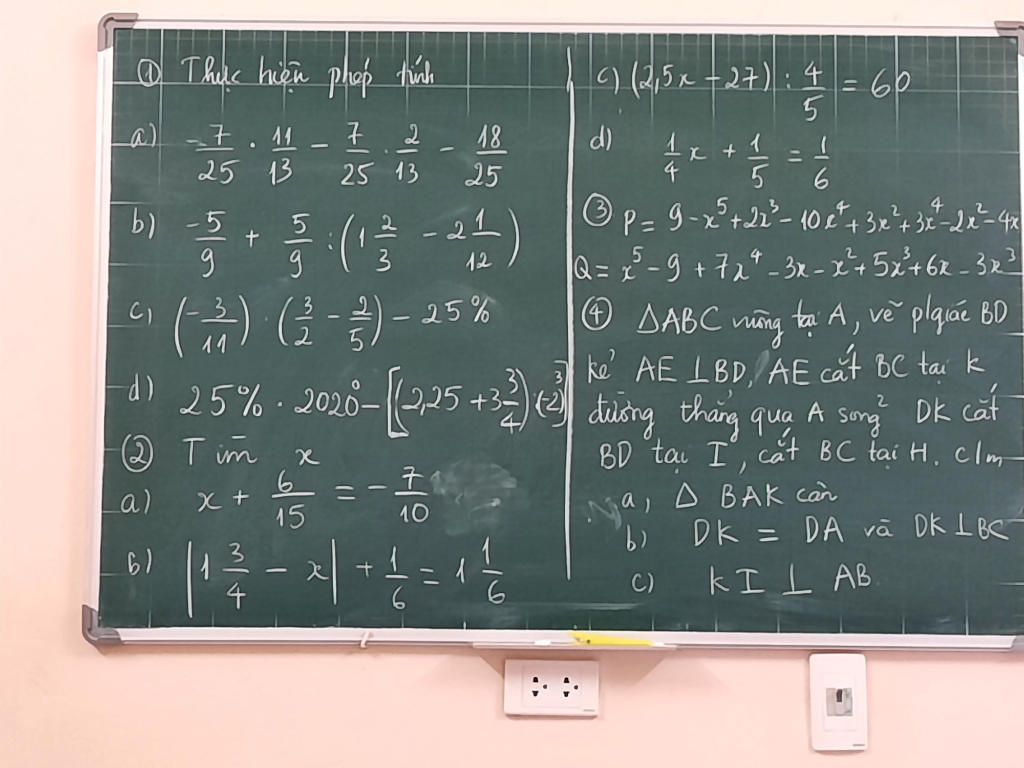 ① Thực hiện phép tính
a) -7/25 . 11/13 - 7/25 . 2/13 - 18/25
b) -5/9 + 5/9 : (1 2/3 - 2 1/12)
c, (-3/11) . (3/2 - 2/5) - 25%
d) 25% . 2020⁰ - [(2,25 + 3 3/4) : (-2)³]
② Tìm x
a) x + 6/15 = -7/10
b) |1 3/4 - x| + 1/6 = 1 1/6
c) (2,5x - 27) : 4/5 = 60
d) 1/4 x + 1/5 = 1/6
③ P = 9 - x⁵ + 2x³ - 10x⁴ + 3x² + 3x⁴ - 2x² - 4x
Q = x⁵ - 9 + 7x⁴ - 3x - x² + 5x³ + 6x - 3x³
④ ΔABC vuông tại A, vẽ p/giác BD
kẻ AE ⊥ BD, AE cắt BC tại K
đường thẳng qua A song² DK cắt
BD tại I, cắt BC tại H. c/m
a, Δ BAK cân
b) DK = DA và DK ⊥ BC
c) KI ⊥ AB